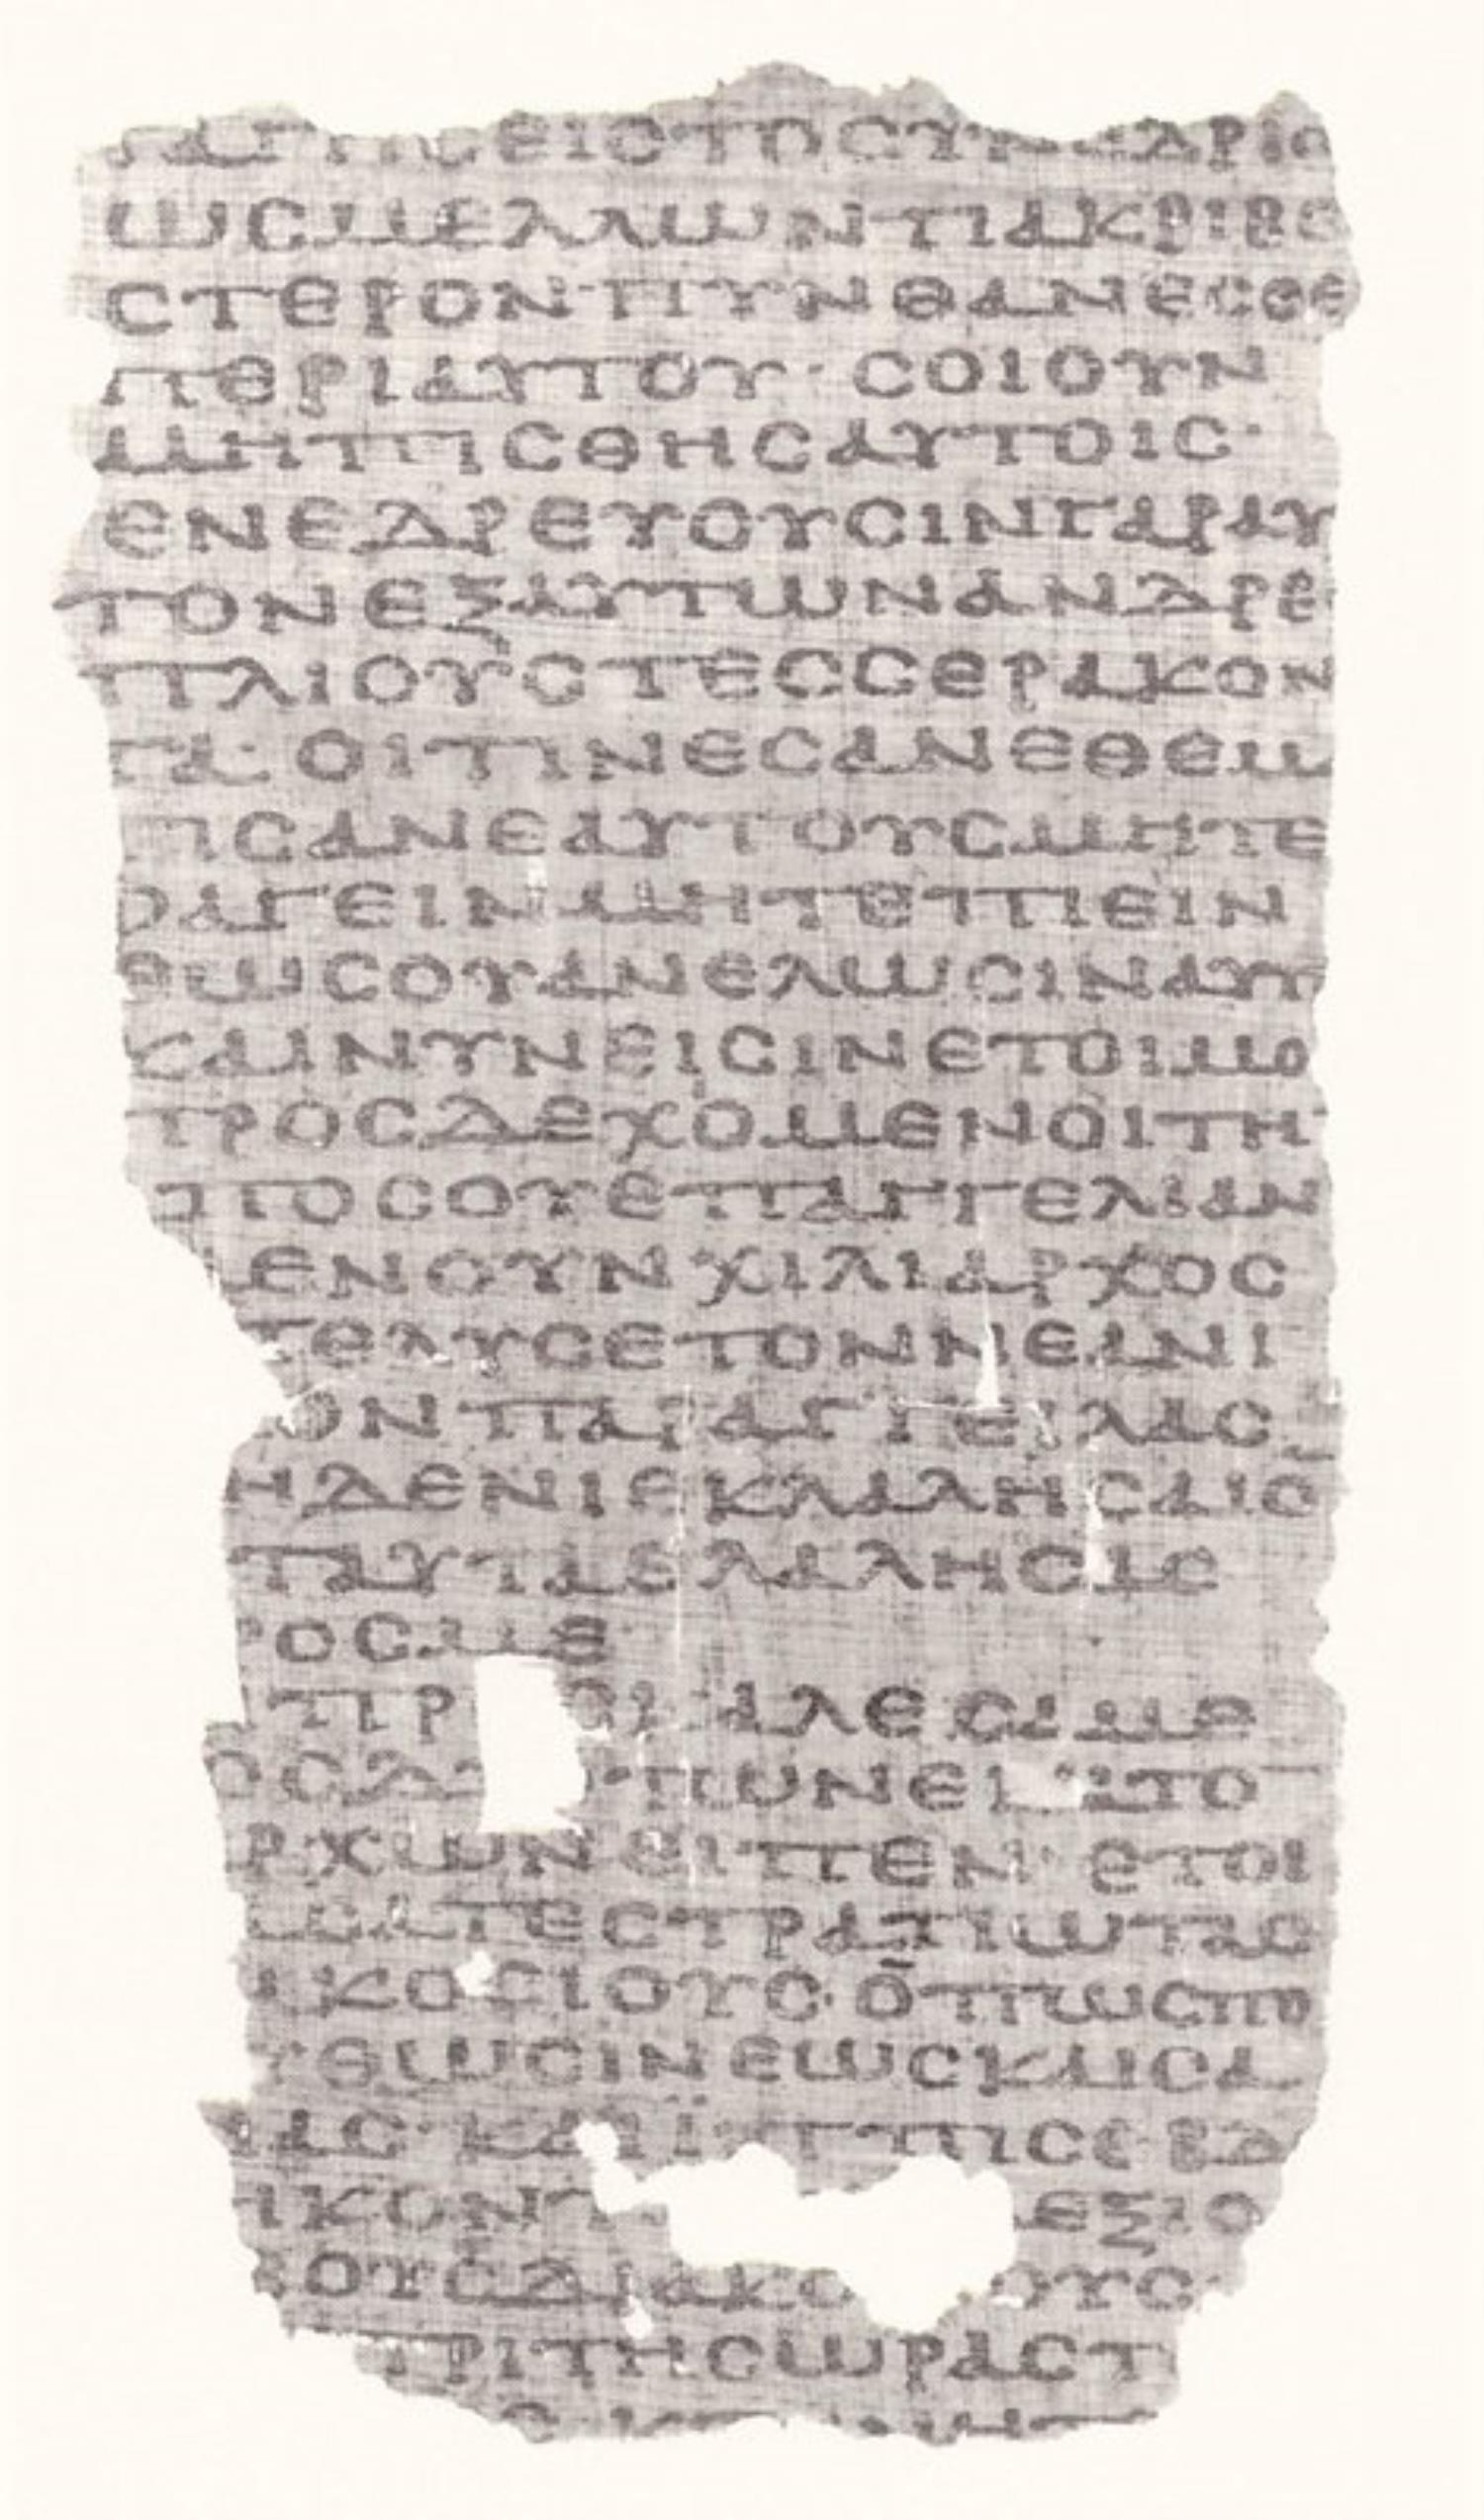 ΓΑΓΗϹΕΙϹΤΟϹΥΝΕΔΡΙΟ
ΩϹΜΕΛΛΩΝΤΙΑΚΡΙΒΕ
ϹΤΕΡΟΝΠΥΝΘΑΝΕϹΘΕ
ΠΕΡΙΑΥΤΟΥ· ϹΟΙΟΥΝ
ΜΗΠΙϹΘΗϹΑΥΤΟΙϹ·
ΕΝΕΔΡΕΥΟΥϹΙΝΓΑΡΑΥ
ΤΟΝΕΞΑΥΤΩΝΑΝΔΡΕ
ΠΛΙΟΥϹΤΕϹϹΕΡΑΚΟΝ
ΤΑ· ΟΙΤΙΝΕϹΑΝΕΘΕΜ
ΤΙϹΑΝΕΑΥΤΟΥϹΜΗΤΕ
ΦΑΓΕΙΝΜΗΤΕΠΙΕΙΝ
ΕΩϹΟΥΑΝΕΛΩϹΙΝΑΥΤ
ΚΑΙΝΥΝΕΙϹΙΝΕΤΟΙΜΟ
ΠΡΟϹΔΕΧΟΜΕΝΟΙΤΗ
ΑΠΟϹΟΥΕΠΑΓΓΕΛΙΑΝ
ΕΝΟΥΝΧΙΛΙΑΡΧΟϹ
ΠΕΛΥϹΕΤΟΝΝΕΑΝΙ
ΟΝΠΑΡΑΓΓΕΙΛΑϹ
ΗΔΕΝΙΕΚΛΑΛΗϹΑΙΟ
ΤΑΥΤΑΕΛΑΛΗϹΑϹ
ΡΟϹΜΕ
ΠΡ ΑΛΕϹΑΜΕ
ΟϹΔ ΤΩΝΕΚΑΤΟ
ΡΧΩΝΕΙΠΕΝ· ΕΤΟΙ
ΑϹΑΤΕϹΤΡΑΤΙΩΤΑϹ
ΑΚΟϹΙΟΥϹ· ΟΠΩϹΠΟ
ΥΘΩϹΙΝΕΩϹΚΑΙϹΑ
ΙΑϹ· ΚΑΙΪΠΠΙϹΕΒΔ
ΗΚΟΝΤ ΕΞΙΟ
ΒΟΥϹΔΙΑΚΟ ΟΥϹ·
ΤΡΙΤΗϹΩΡΑϹΤ